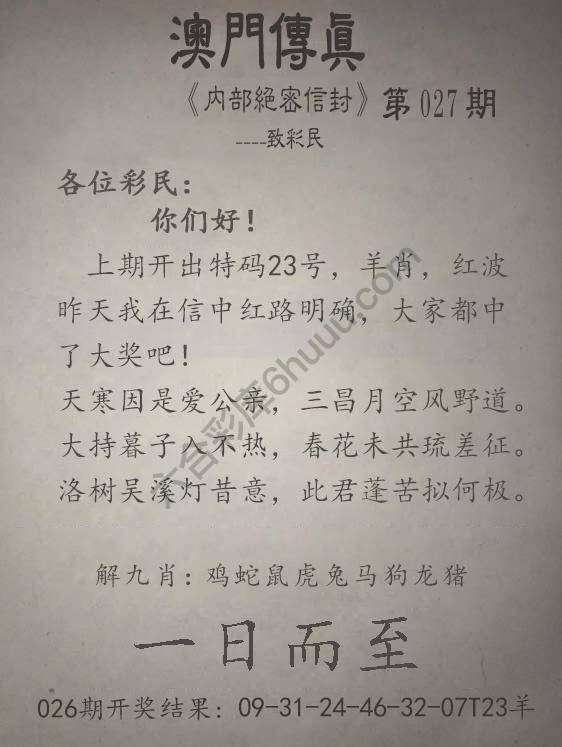 澳門傳眞
《内部絕密信封》第027期
----致彩民
各位彩民：
你们好！
上期开出特码23号，羊肖，红波
昨天我在信中红路明确，大家都中
了大奖吧！
天寒因是爱公亲，三昌月空风野道。
大持暮子入不热，春花未共琉差征。
洛树吴溪灯昔意，此君蓬苦拟何极。
六合彩库6huuu.com
解九肖：鸡蛇鼠虎兔马狗龙猪
一日而至
026期开奖结果：09-31-24-46-32-07T23羊